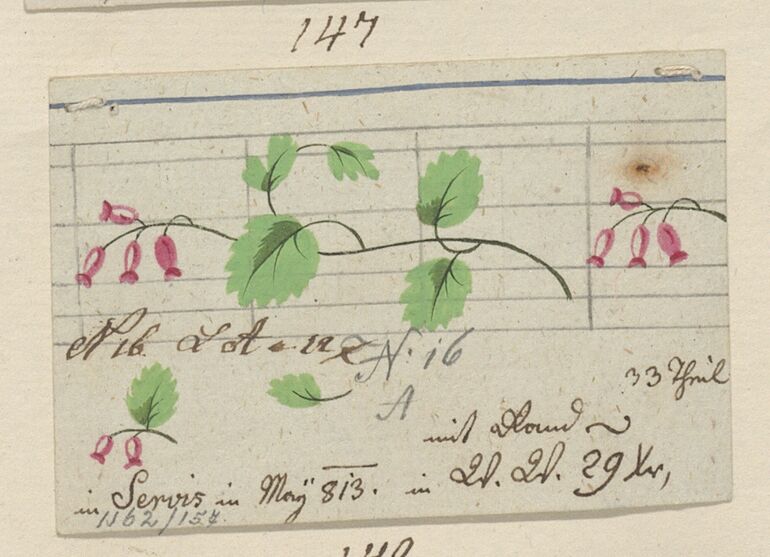 147
N 16 L A a 12 x N. 16
A
33 Theil
mit Rand
in Servis in Maÿ 813. in W. W. 29 Xr,
1162/157.